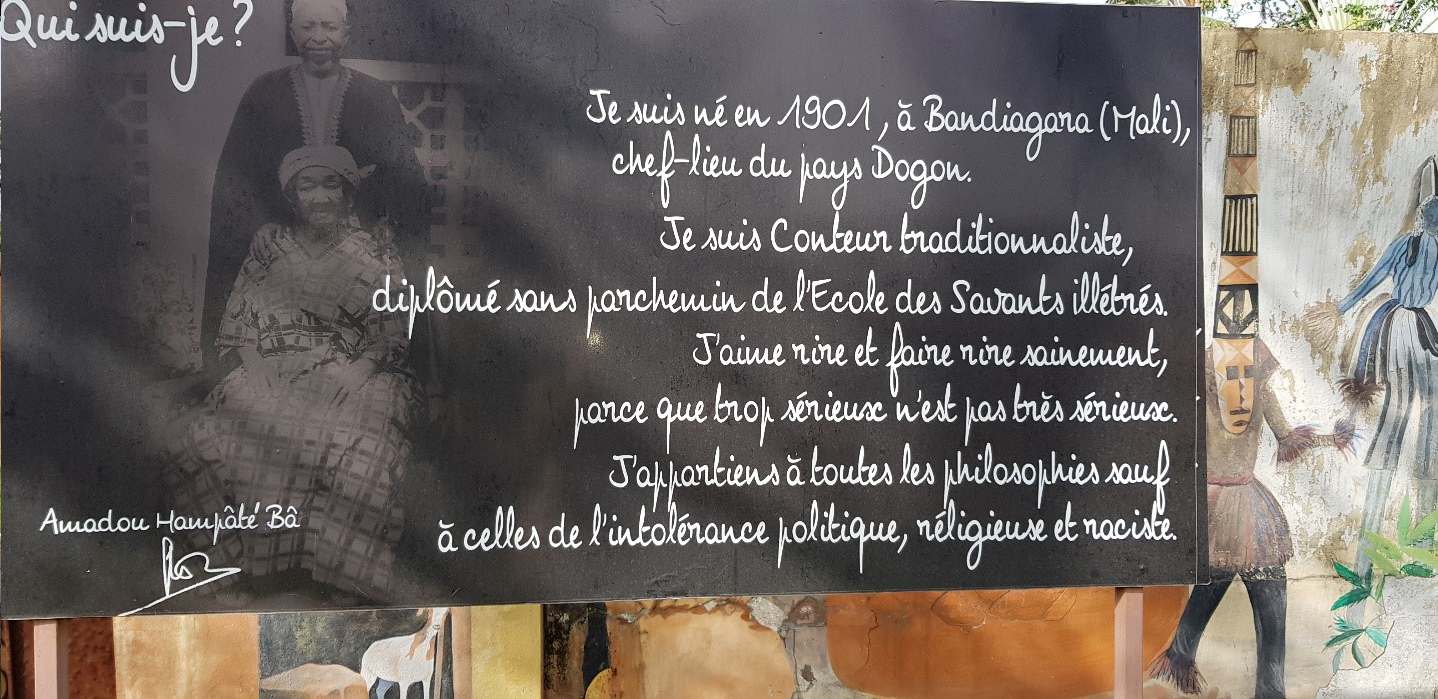 Qui suis-je ?
Je suis né en 1901, à Bandiagara (Mali),
chef-lieu du pays Dogon.
Je suis Conteur traditionnaliste,
diplômé sans parchemin de l'Ecole des Savants illétrés.
J'aime rire et faire rire sainement,
parce que trop sérieux n'est pas très sérieux.
J'appartiens à toutes les philosophies sauf
à celles de l'intolérance politique, réligieuse et raciste.
Amadou Hampâté Bâ